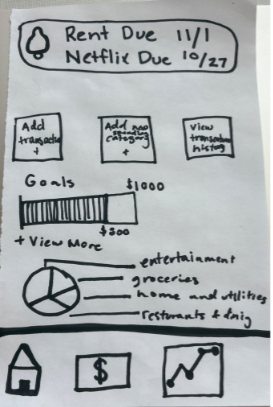 Rent Due 11/1
Netflix Due 10/27
Add
transactio
+
Add new
spending
category
+
View
transaction
history
Goals
$1000
$800
+ View More
entertainment
groceries
home and utilities
resturants &
$